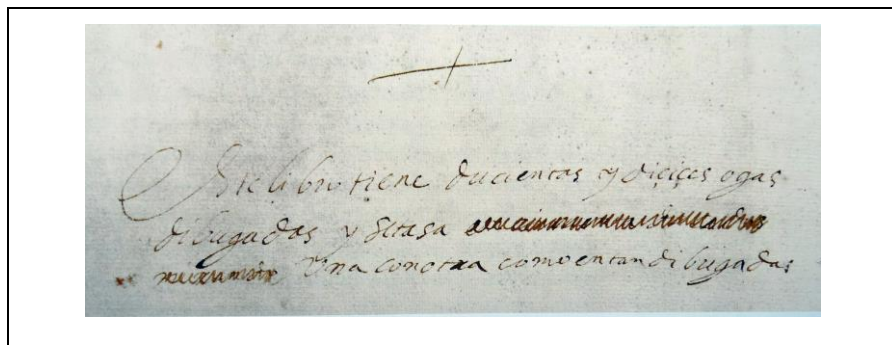 Este libro tiene ducientas y diçiçes ogas
dibugadas y se tasa
una con otra como entan dibugadas